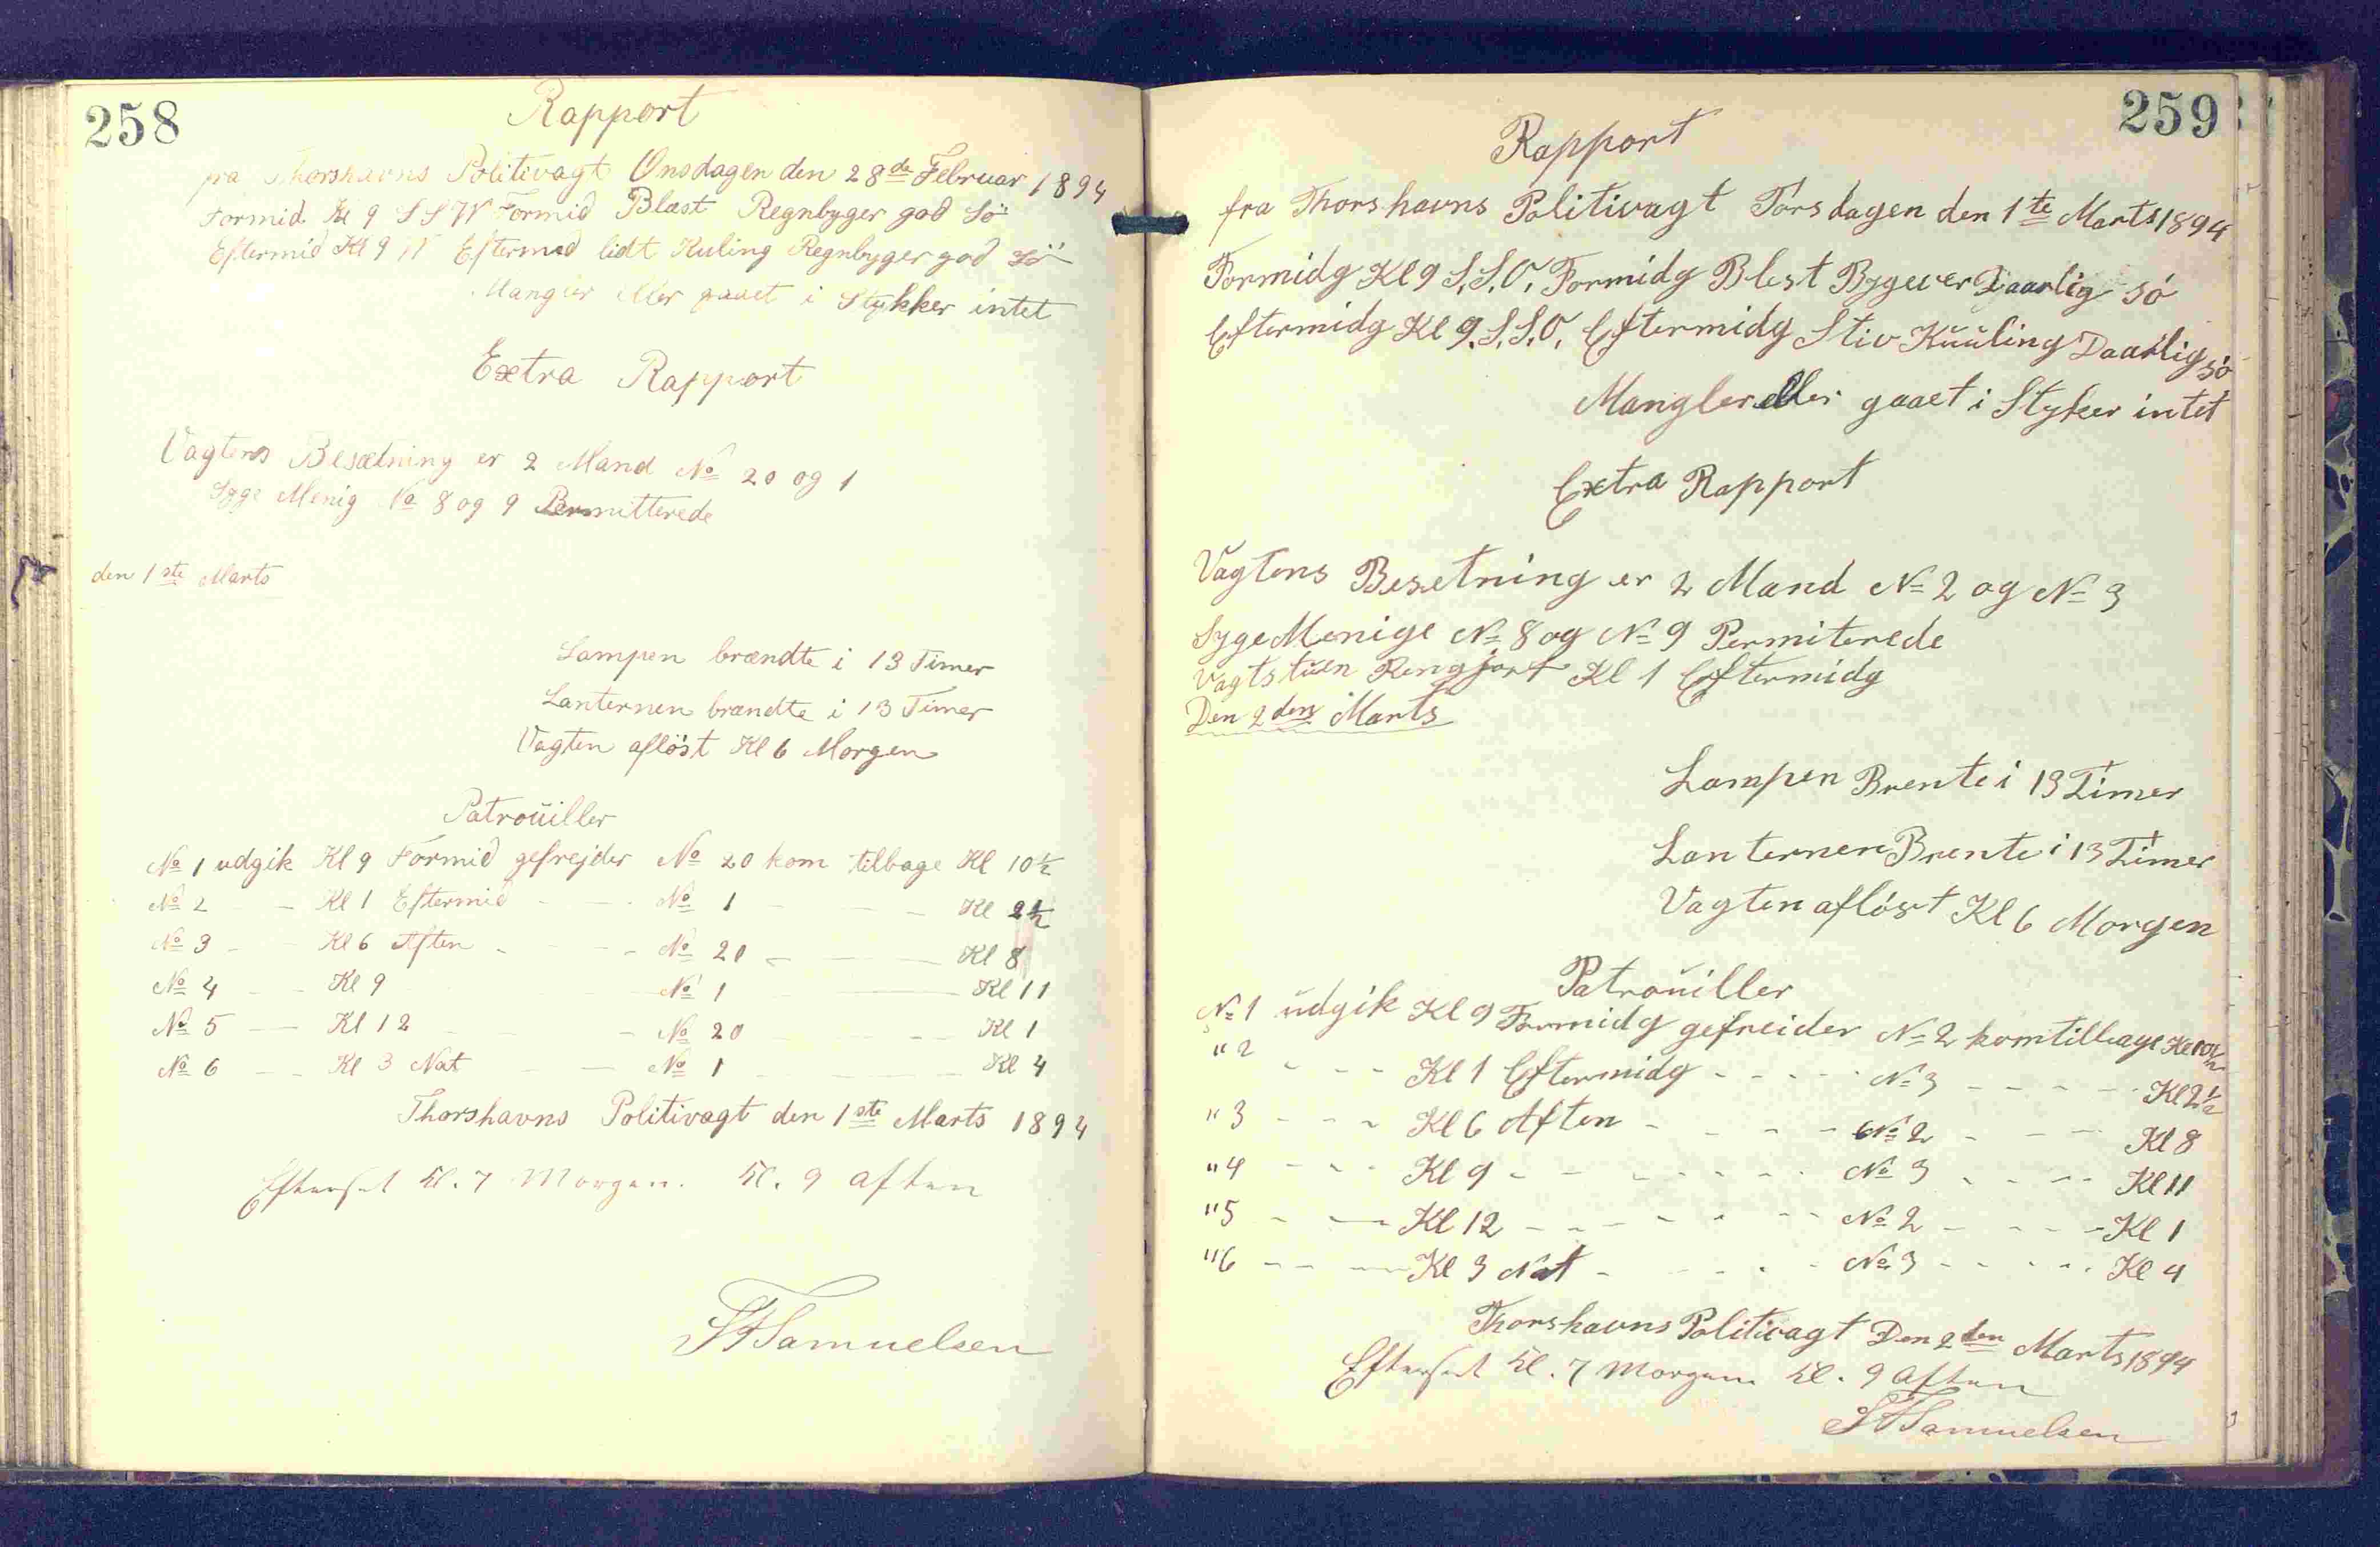 258
Rapport
fra Thorshavns Politivagt Onsdagen den 28de Februar 1894
Formid. Kl 9 S S W Formid Blæst Regnbyger god Sö
Eftermid Kl 9 W Eftermed lidt Kuling Regnbyger god Sö
Mangler eller gaaet i Stykker intet
Extra Rapport
Vagtens Besætning er 2 Mand No 20 og 1
Syge Menig No 8 og 9 Permitterede
den 1ste Marts
Lampen brændte i 13 Timer
Lanternen brændte i 13 Timer
Vagten aflöst Kl 6 Morgen
Patroüiller
No 1 udgik Kl 9 Formid gefrejder No 20 kom tilbage Kl 10½
No 2 - - Kl 1 Eftermid - - No 1 - - - Kl 2½
No 3 - - Kl 6 Aften - - - No 20 - - - Kl 8
No 4 - - Kl 9 - No 1 - - Kl 11
No 5 - - Kl 12 - - No 20 - - - Kl 1
No 6 - - Kl 3 Nat - - No 1 - - - Kl 4
Thorshavns Politivagt den 1ste Marts 1894
Efterset Kl. 7 Morgen. Kl. 9 Aften
Samuelsen
259
Rapport
fra Thorshavns Politivagt Torsdagen den 1te Marts 1894
Formidg Kl 9 S.S.O. Formidg Blest Bygever Daarlig Só
Eftermidg Kl 9. S.S.O. Eftermidg Stiv Kuüling Daarlig só
Mangler eller gaaet i Styker intet
Extra Rapport
Vagtens Besetning er 2 Mand No 2 og No 3
Syge Menige No 8 og No 9 Permiterede
Vagtstuen Rengjort Kl 1 Eftermidg
Den 2den Marts
Lampen Brente i 13 Timer
Lanternen Brente i 13 Timer
Vagten aflóst Kl 6 Morgen
Patroüiller
No 1 üdgik Kl 9 Formidg gefreider No 2 kom tilbage Kl 10½
" 2 - - - Kl 1 Eftermidg - - - - No 3 - - - - - Kl 2½
" 3 - - - Kl 6 Aften - - - - No 2 - - - Kl 8
" 4 - - - Kl 9 - - - - - No 3 - - - - Kl 11
" 5 - - Kl 12 - - - - - - No 2 - - - - Kl 1
" 6 - - - Kl 3 Nat - - - - - No 3 - - - - - Kl 4
Thorshavns Politivagt Den 2den Marts 1894
Efterset Kl. 7 Morgen Kl. 9 Aften
Samuelsen